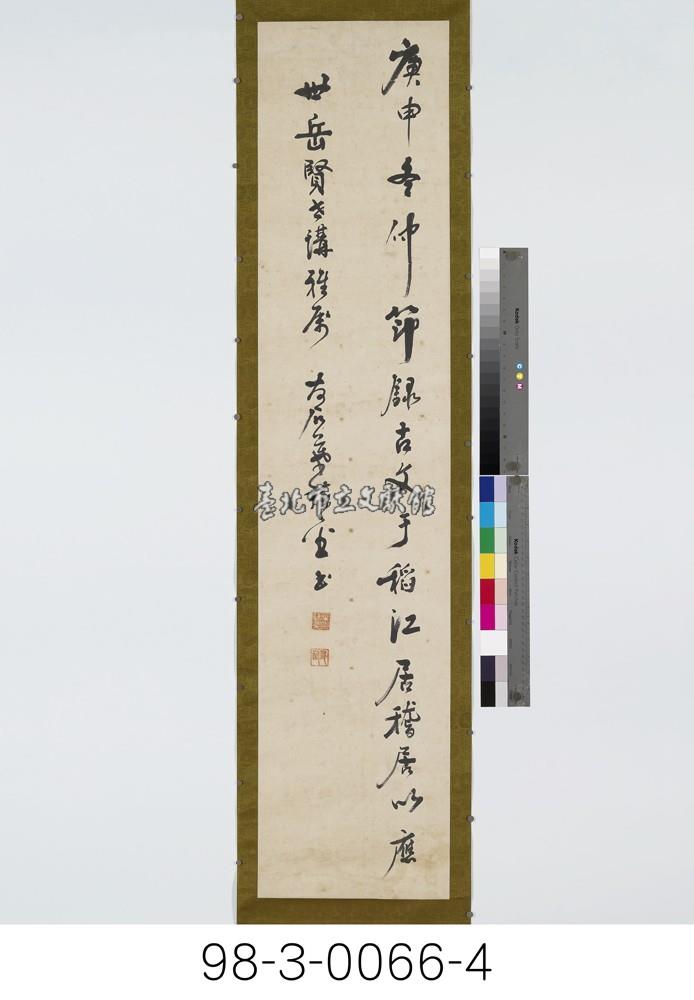 庚申冬仲節録古文于稻江居稽居以應
世岳賢台講雅屬
臺北市立文獻館
98-3-0066-4